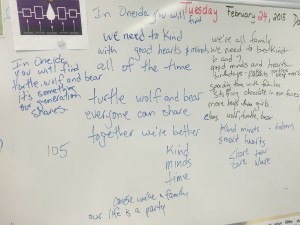 Tuesday February 24, 2015
In Oneida you will find
we need to kind
with good hearts & minds
all of the time
In Oneida
you will find
turtle, wolf and bear
it's something
our generation
shares
turtle wolf and bear
everyone can share
together we're better
105
Kind
minds
time
we're a family
our life is a party
we're all family
we need to be kind
6 and 7
good minds and hearts
chocolate in our faces
more boys than girls
clans wolf, turtle, bear
Kind minds
smart hearts